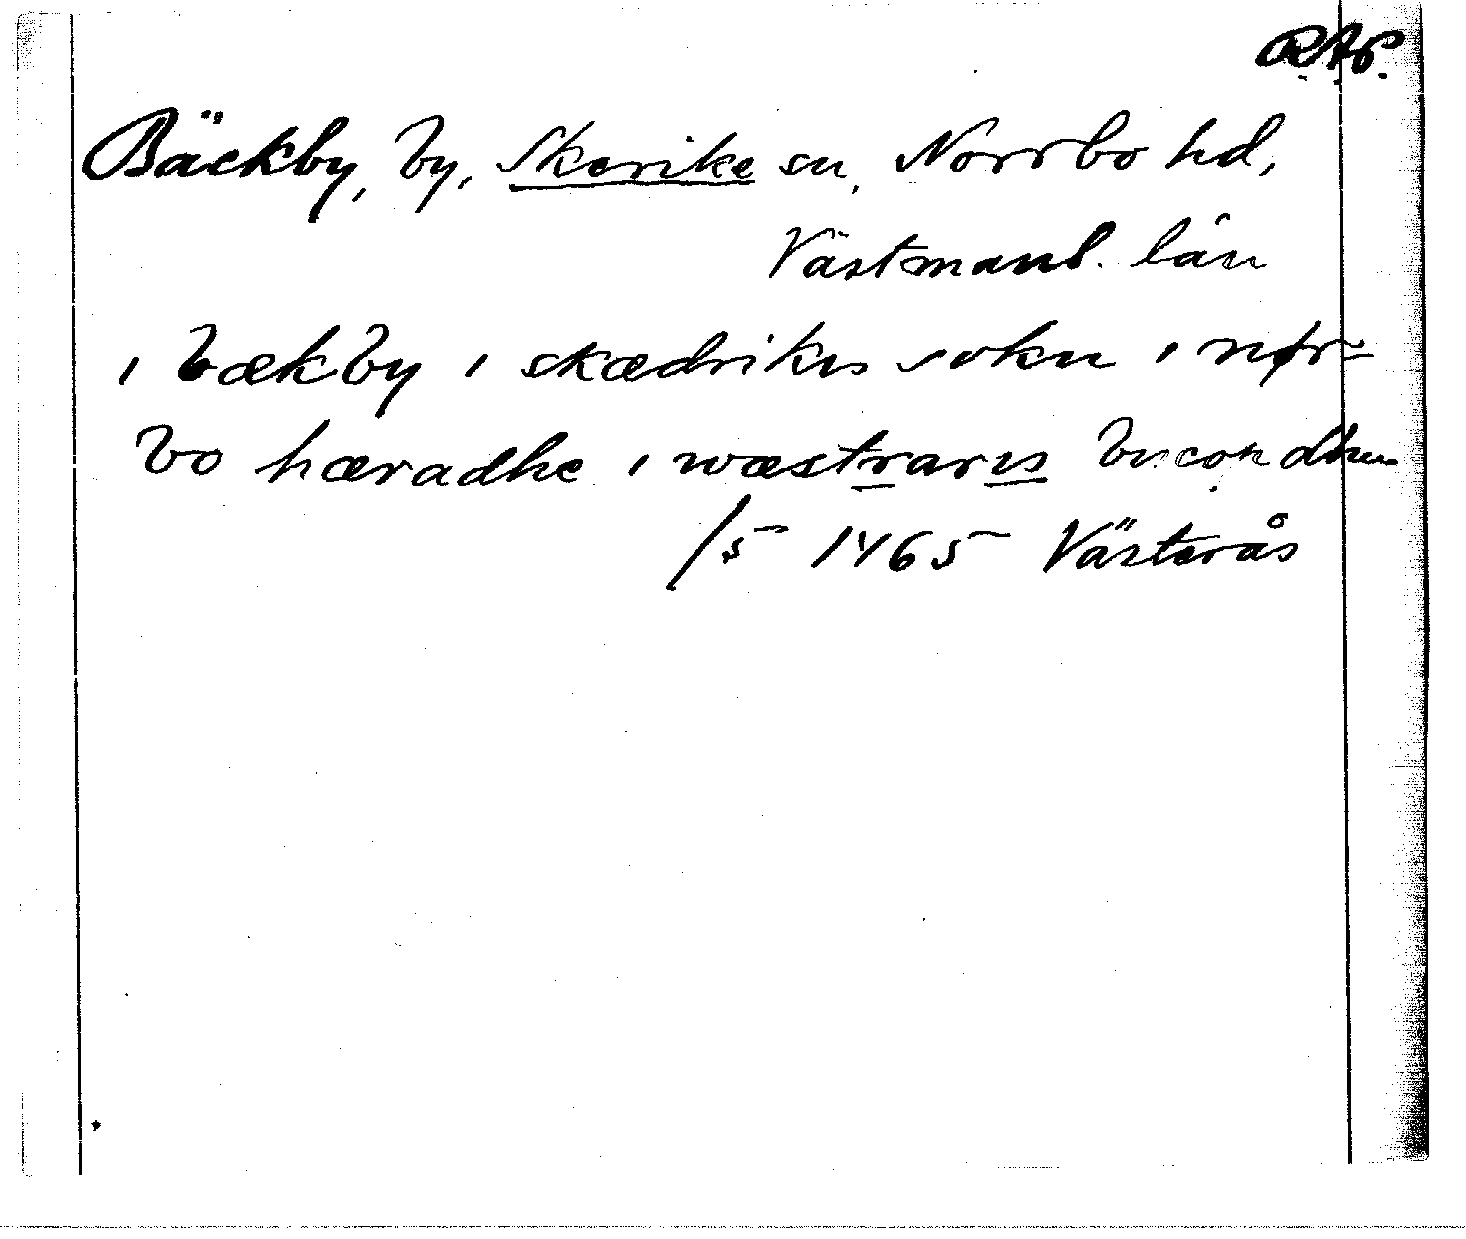 R.A.P.
Bäckby, by, Skerike sn, Norrbo hd,
Västmanl. län
i bækby i skædrikes sokn i nør=
bo hæradhe i wæstrares
/5 1465 Västerås